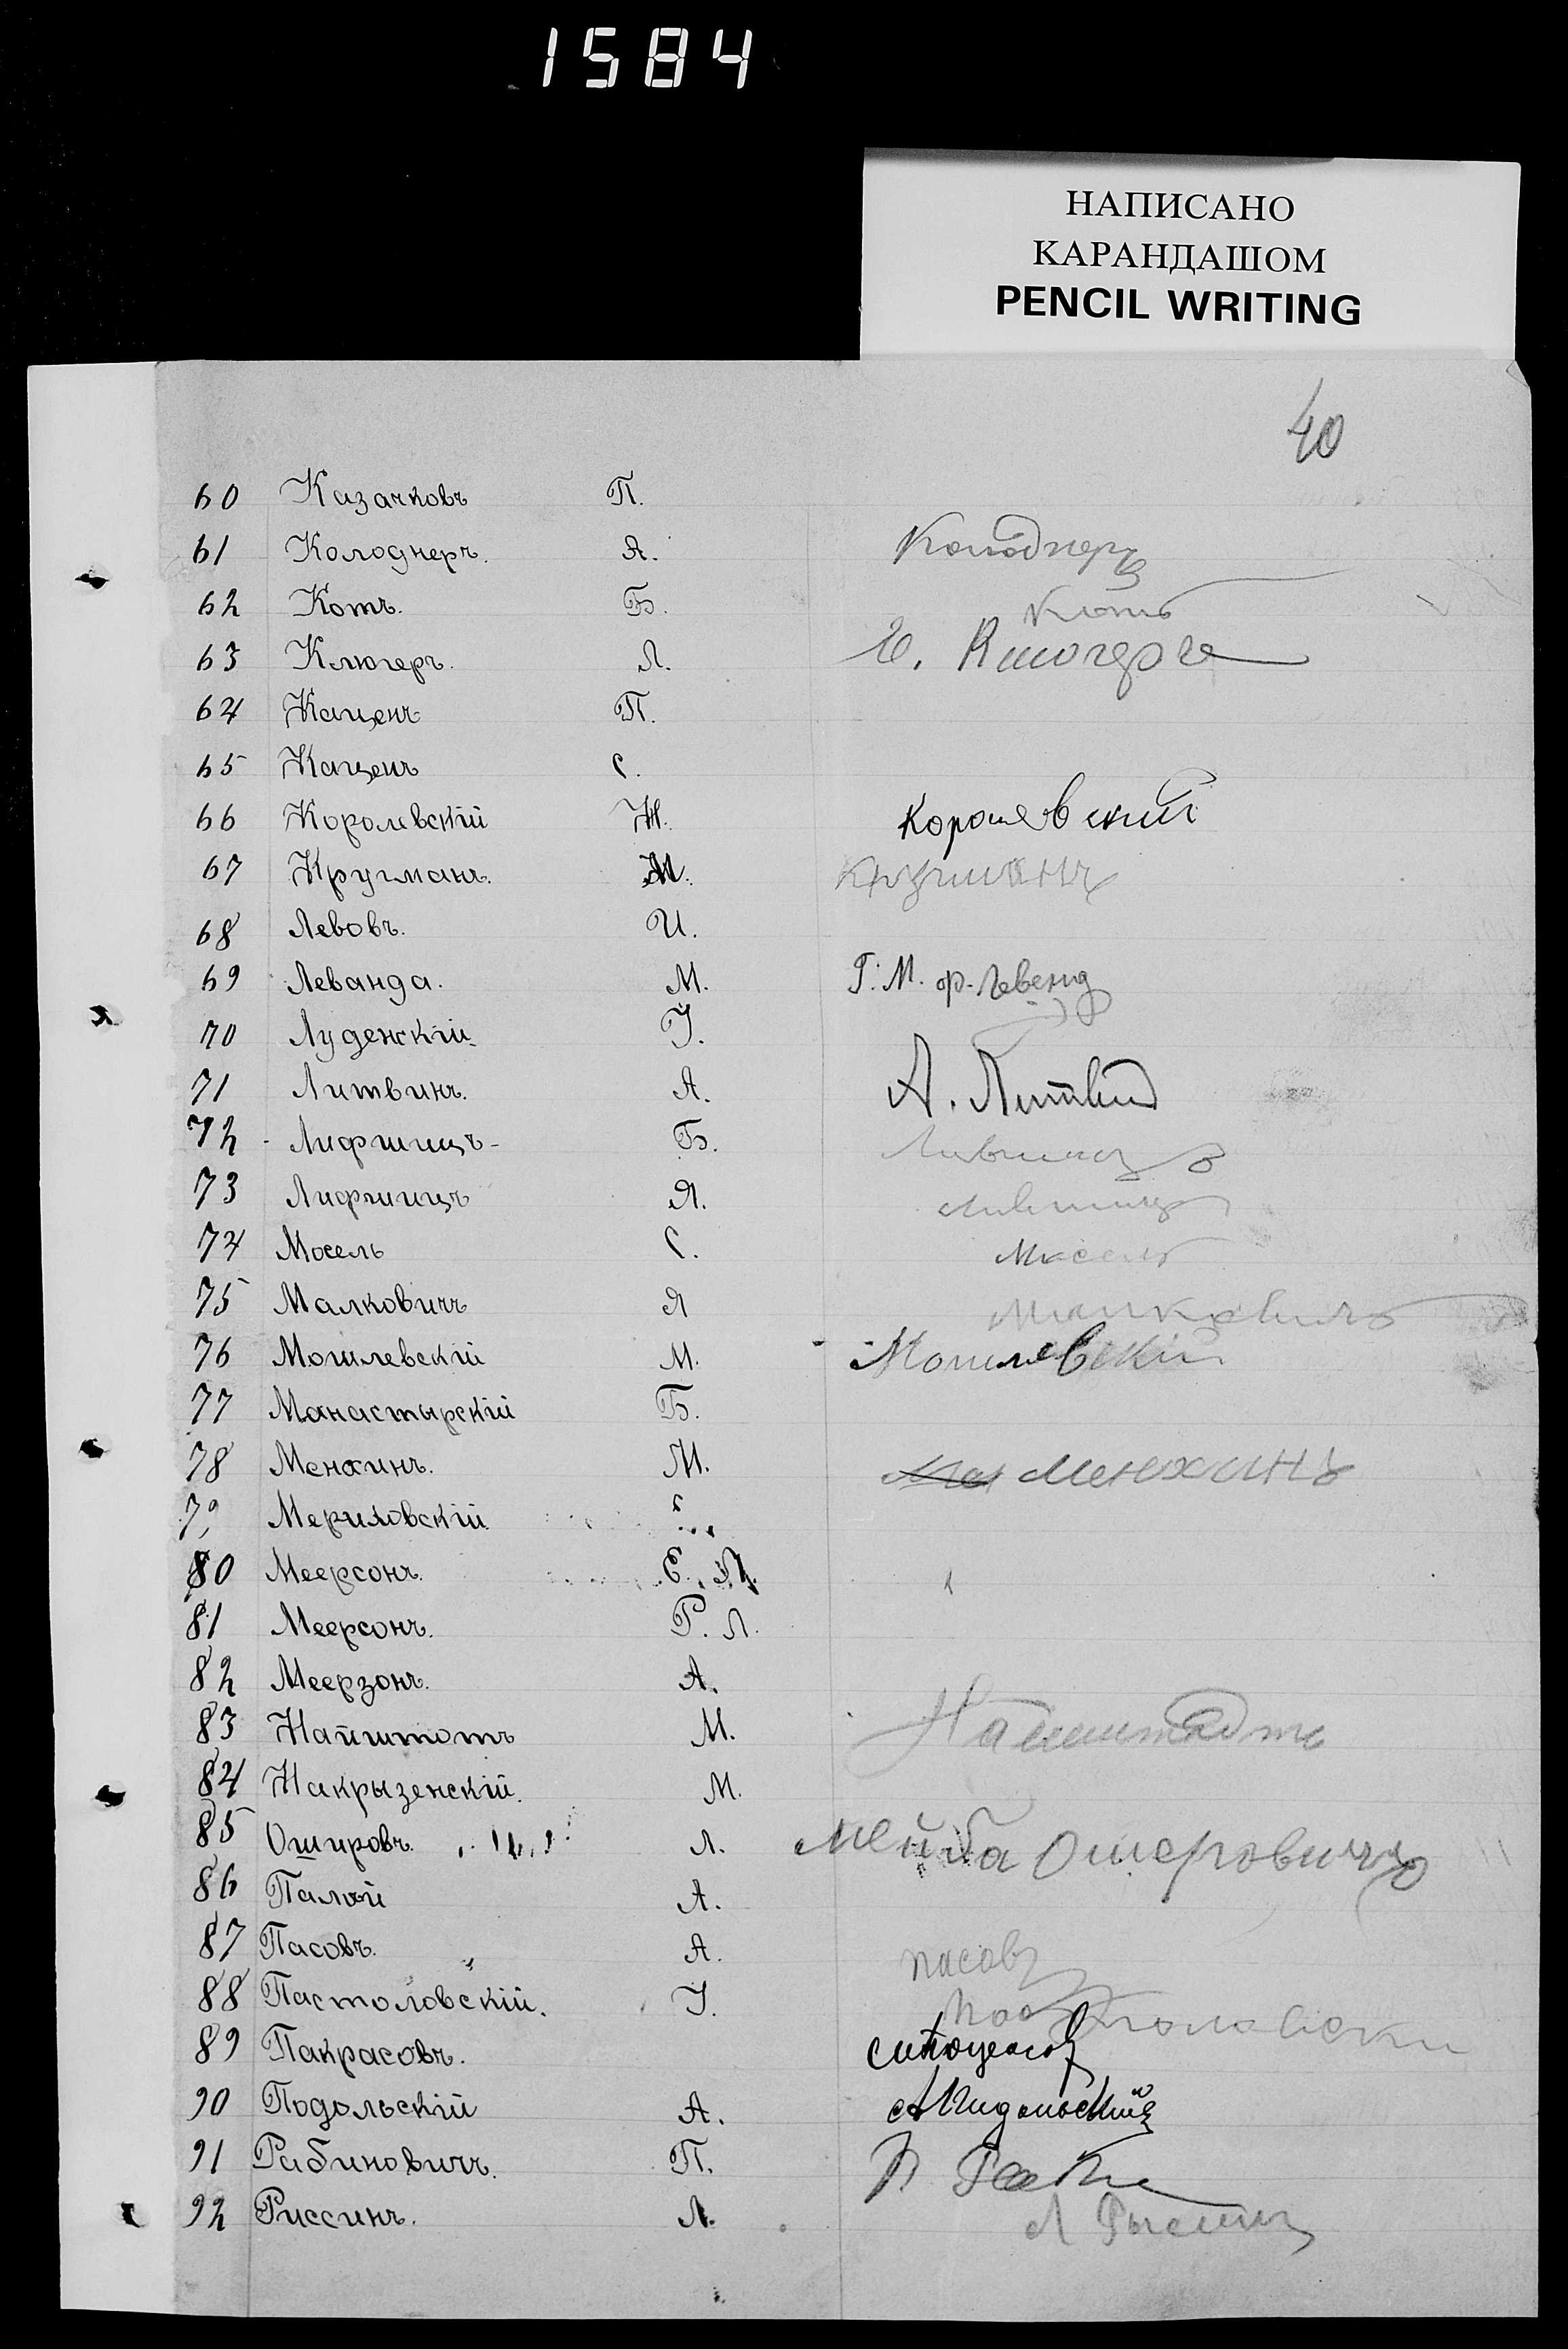 1584
НАПИСАНО
КАРАНДАШОМ
PENCIL WRITING
40
60 Казачковъ П.
61 Колоднеръ. А. Колоднеръ
62 Котъ. Б. Котъ
63 Клюгеръ. Л. Клюгеръ
64 Каценъ П.
65 Каценъ С.
66 Королевскій Н. Королевский
67 Кругманъ. М. Кругманъ
68 Левовъ. И.
69 Леванда. М. Г. М. Ф. Левенд
70 Луденскій. I.
71 Литвинъ. А. А. Литвин
72 - Лифшицъ - Б. Лившиц
73 Лифшицъ Я. Лившиц
74 Мосель С. Мосель
75 Малковичъ Я Малкович
76 Могилевскій М. Могилевскій
77 Манастырскій Б.
78 Менхинъ. М. Менюхинъ
79 Мериховскій
80 Меерсонъ. Е. Л.
81 Меерсонъ. Р. Л.
82 Меерзонъ. А.
83 Найштотъ М. Найштадтъ
84 Накрызенскій. М.
85 Ошировъ. Л. Лейба Ошеровичъ
86 Палей А.
87 Пасовъ. А. Пасовъ
88 Пастоловскій. I. Постоловски
89 Пакрасовъ.
90 Подольскій А. А Подольский
91 Рабиновичъ. П. П.
92 Риссинъ. Л. Л Рыссин